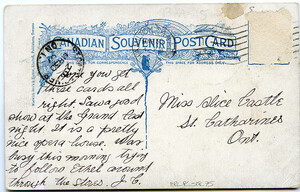 CANADIAN SOUVENIR POST CARD
FOR CORRESPONDENCE
THIS SPACE FOR ADDRESS ONLY
Hope you get
these cards all
right. Saw a good
show at the Grand last
night. It is a pretty
nice opera house. Was
busy this morning trying
to follow Ethel around
through the Stores. J.C.
Miss Alice Castle
St. Catharines
Ont.